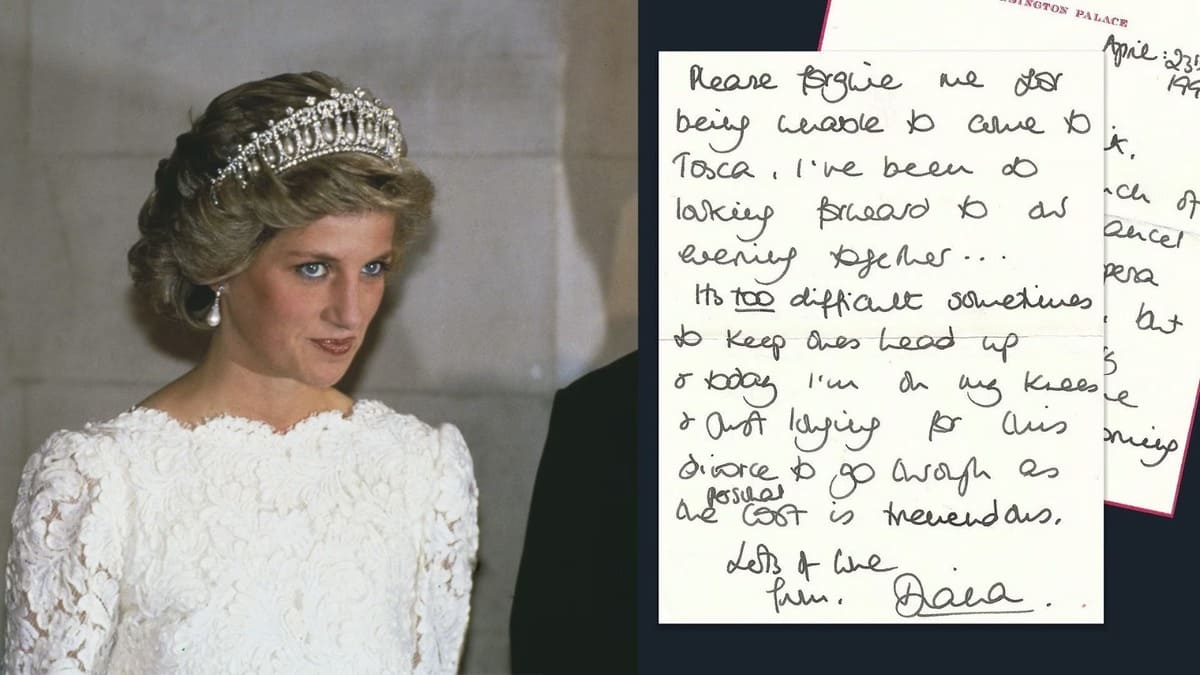 KENSINGTON PALACE
April: 23rd
199
Please forgive me for
being unable to come to
Tosca. I've been so
looking forward to our
evening together...
Its too difficult sometimes
to keep ones head up
& today I'm on my knees
& just longing for this
divorce to go through as
the personal cost is tremendous.
Lots of love
from. Diana.
ch of
ancel
pera
but